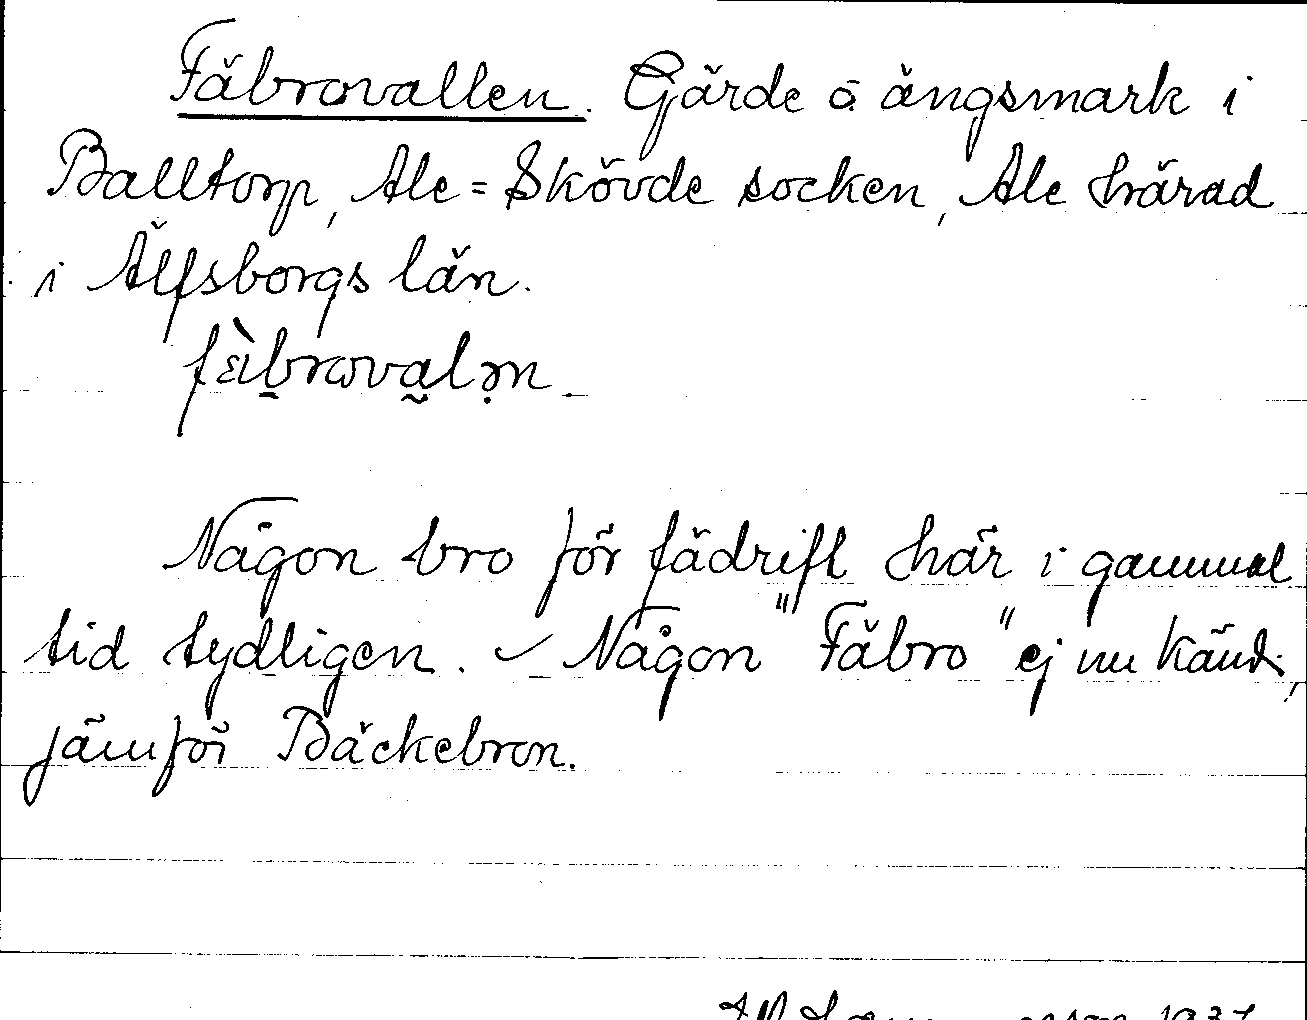 Fäbrovallen. Gärde å ängsmark i
Balltorp, Ale=Skövde socken, Ale härad
i Älfsborgs län.
fɛ̀brovalən
Någon bro för fädrift här i gammal
tid tydligen. – Någon "Fäbro" ej nu känd,
jämför Bäckebron.
1937